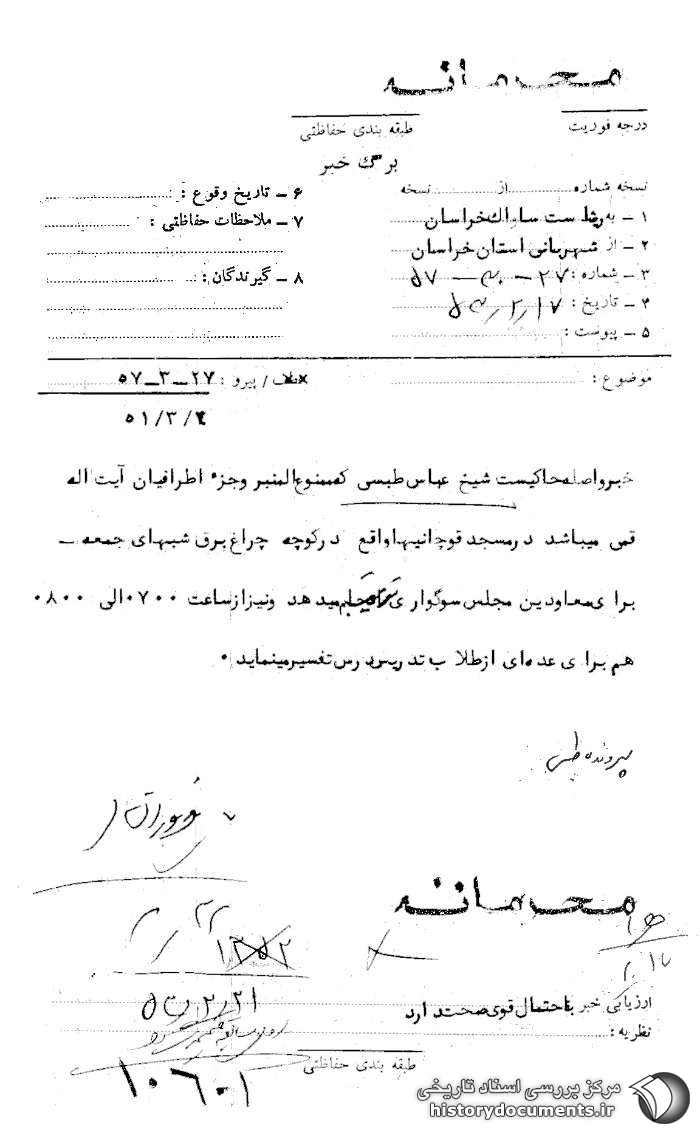 محرمانه
درجه فوریت
طبقه بندی حفاظتی
برگ خبر
نسخه شماره ......... از ......... نسخه
۱ – به ریاست ساواک خراسان
۲ – از شهربانی استان خراسان
۳ – شماره : ۲۷ – ۳۰ – ۵۷
۴ – تاریخ : ۵۳/۲/۱۷
۵ – پیوست :
۶ – تاریخ وقوع :
۷ – ملاحظات حفاظتی :
۸ – گیرندگان :
موضوع :
عطف / پیرو : ۲۷–۳–۵۷
۵۱/۳/۴
خبر واصله حاکیست شیخ عباس طبسی که ممنوع المنبر وجزء اطرافیان آیت اله
قمی میباشد در مسجد قوچانیها واقع در کوچه چراغ برق شبهای جمعه –
برای معاودین مجلس سوگواری انجام میدهد ونیز از ساعت ۰۷۰۰ الی ۰۸۰۰
هم برای عده ای از طلاب تدریس درس تفسیر مینماید .
پرونده طبسی
محرمانه
۱۳۵۲
ارزیابی خبر باحتمال قوی صحت دارد
نظریه :
۵۳/۲/۲۱
طبقه بندی حفاظتی
۱۰۶۰۱
مرکز بررسی اسناد تاریخی
historydocuments.ir